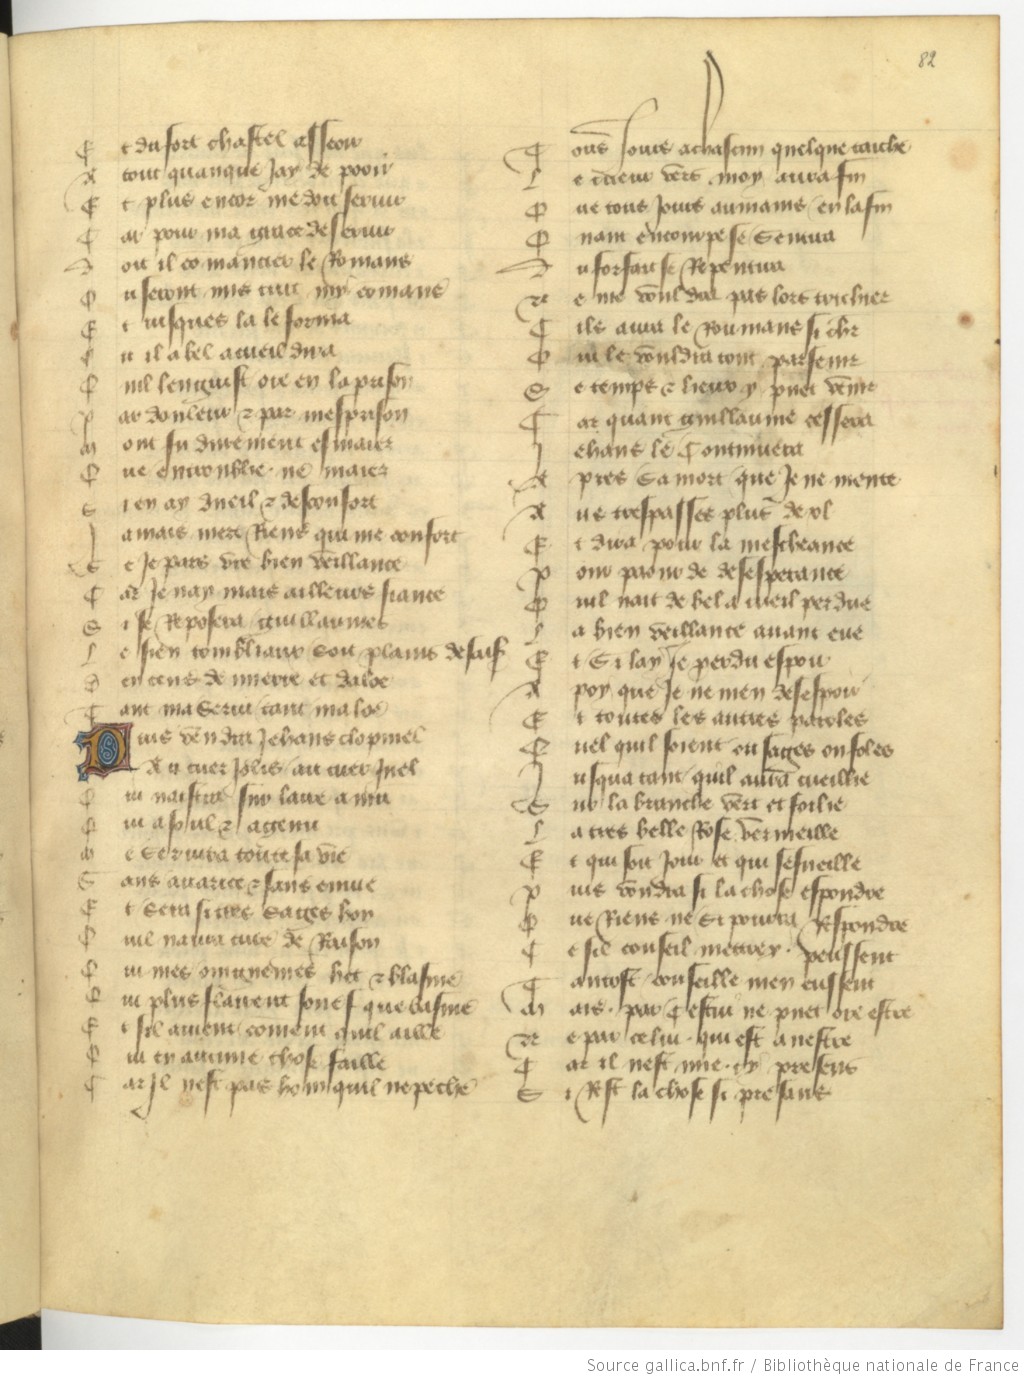 82
E t du fort chastel asseoir
A tout quanque Jay de pooir
E t plus encor me doit seruir
C ar pour ma grace deseruir
D oit il comancier le Romans
O u seront mis tuit my comans
E t iusques la le forma
O u il a bel acueil dira
Q uil lenguist ore en la prison
P ar douleur et par mesprison
M ont su durement esmaier
Q ue entroublie ne maier
S i en ay dueil et desconfort
J amais niert Riens qui me confort
S e Je pers vre bien veillance
C ar Je nay mais ailleurs fiance
S i se Reposera guillaumes
L e sien tombliaux sou plains de saus
D encens de mierre et daloe
T ant ma Serui tant ma loe
P uis vendra Jehans clopinel
A u cuer Jolis au cuer Jnel
Q ui naistra sus laire a mu
Q ui a soul et agenu
M e Seruira toute sa vie
S ans auarice et sans enuie
E t Sera si tres Sages hon
Q uil naura cure de Raison
Q ui mes oingnemes het et blasme
Q ui plus flairent soues que basme
E t sil auient coment quil aille
Q ui en aucune chose faille
C ar Jl nest pas hom qui ne peche
T ous Jours a chascun quelque taiche
L e cueur vers moy aura fin
Q ue tous Jours aumains en la fin
Q uant encorpe se Sentira
D u forfait se Repentira
N e me vouldra pas lors trichier
C ils aura le Roumans si chr
Q ui le vouldra tout parfenir
S e temps et lieux y puet venir
C ar quant guillaume cessera
J ehans le Continuera
A pres Sa mort que Je ne mente
A ns trespasses plus de xl
E t dira pour la mescheance
P our paour de desesperance
Q uil nait de bel acueil perdue
L a bien veillance auant eue
E t Si lay Je perdu espoir
A poy que Je ne men desespoir
E t toutes les autres paroles
Q uel quil soient ou sages ou foles
J usqua tant quil aura cueillie
S us la branche vert et foilie
L a tres belle Rose vermeille
E t qui soit Jour et qui sesueille
P uis voudra si la chose espondre
Q ue Riens ne Si pourra Respondre
C e sil conseil mettre y peussent
T antost conseille men eussent
M ais par Cestui ne puet ore estre
N e par celui qui est a nestre
C ar il nest mie cy presens
S i Rest la chose si presans
Source gallica.bnf.fr / Bibliothèque nationale de France